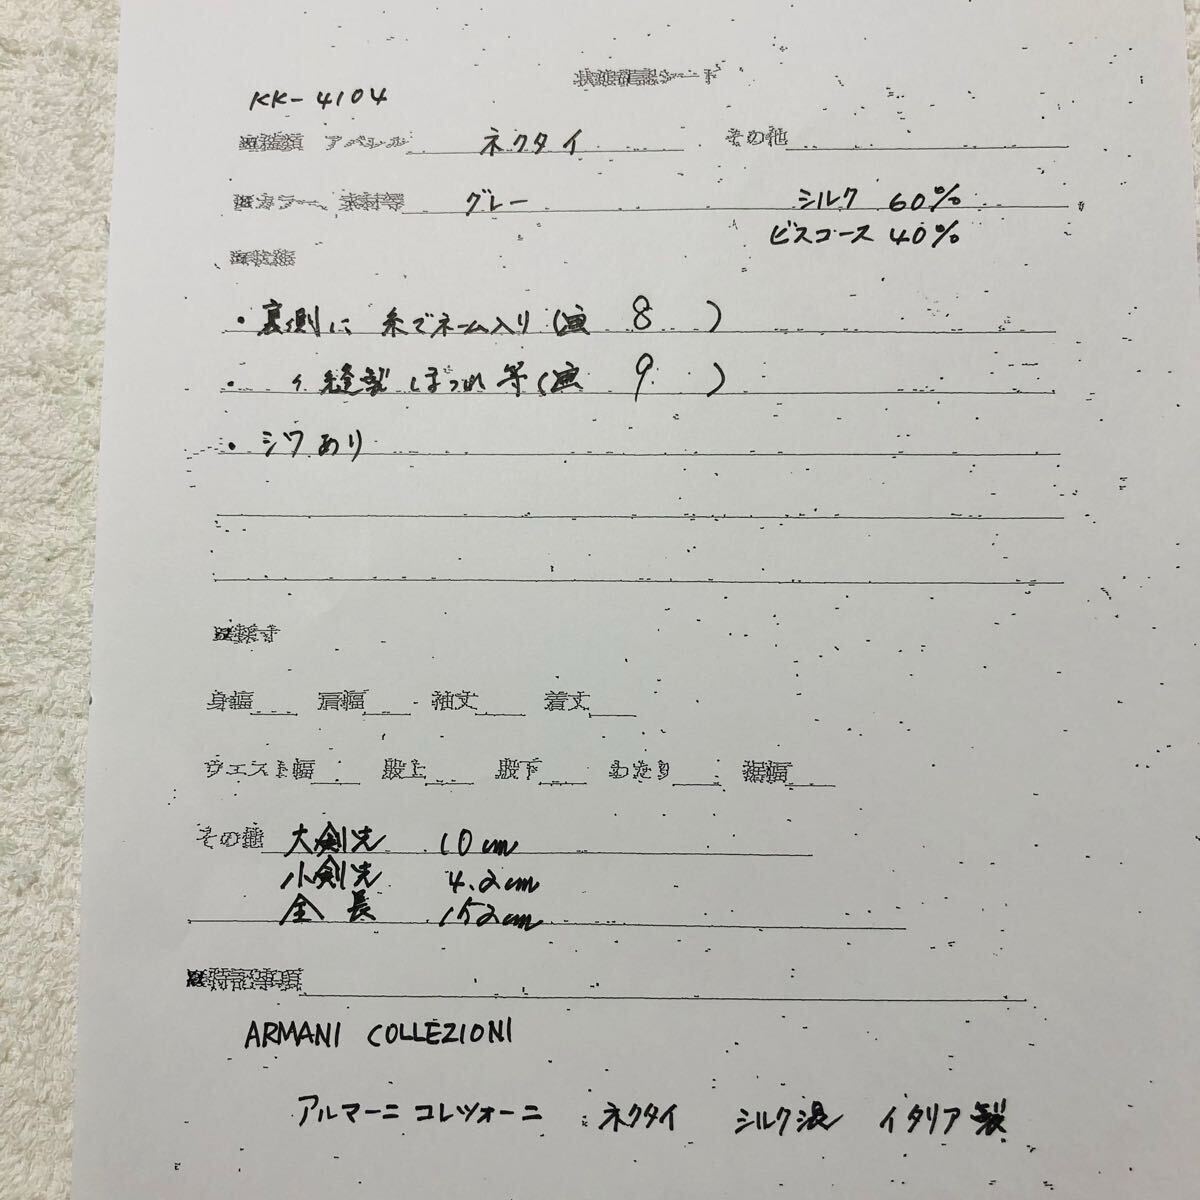 状態確認シート
KK-4104
■種類 アパレル ネクタイ その他
■カラー、素材等 グレー シルク 60%
ビスコース 40%
■状態
・裏側に 糸でネーム入り(画 8 )
・ 〃 縫製 ほつれ 等(画 9 )
・シワあり
■採寸
身幅 肩幅 袖丈 着丈
ウエスト幅 股上 股下 わたり 裾幅
その他 大剣先 10cm
小剣先 4.2cm
全 長 152cm
■特記事項
ARMANI COLLEZIONI
アルマーニ コレツォーニ ネクタイ シルク混 イタリア製